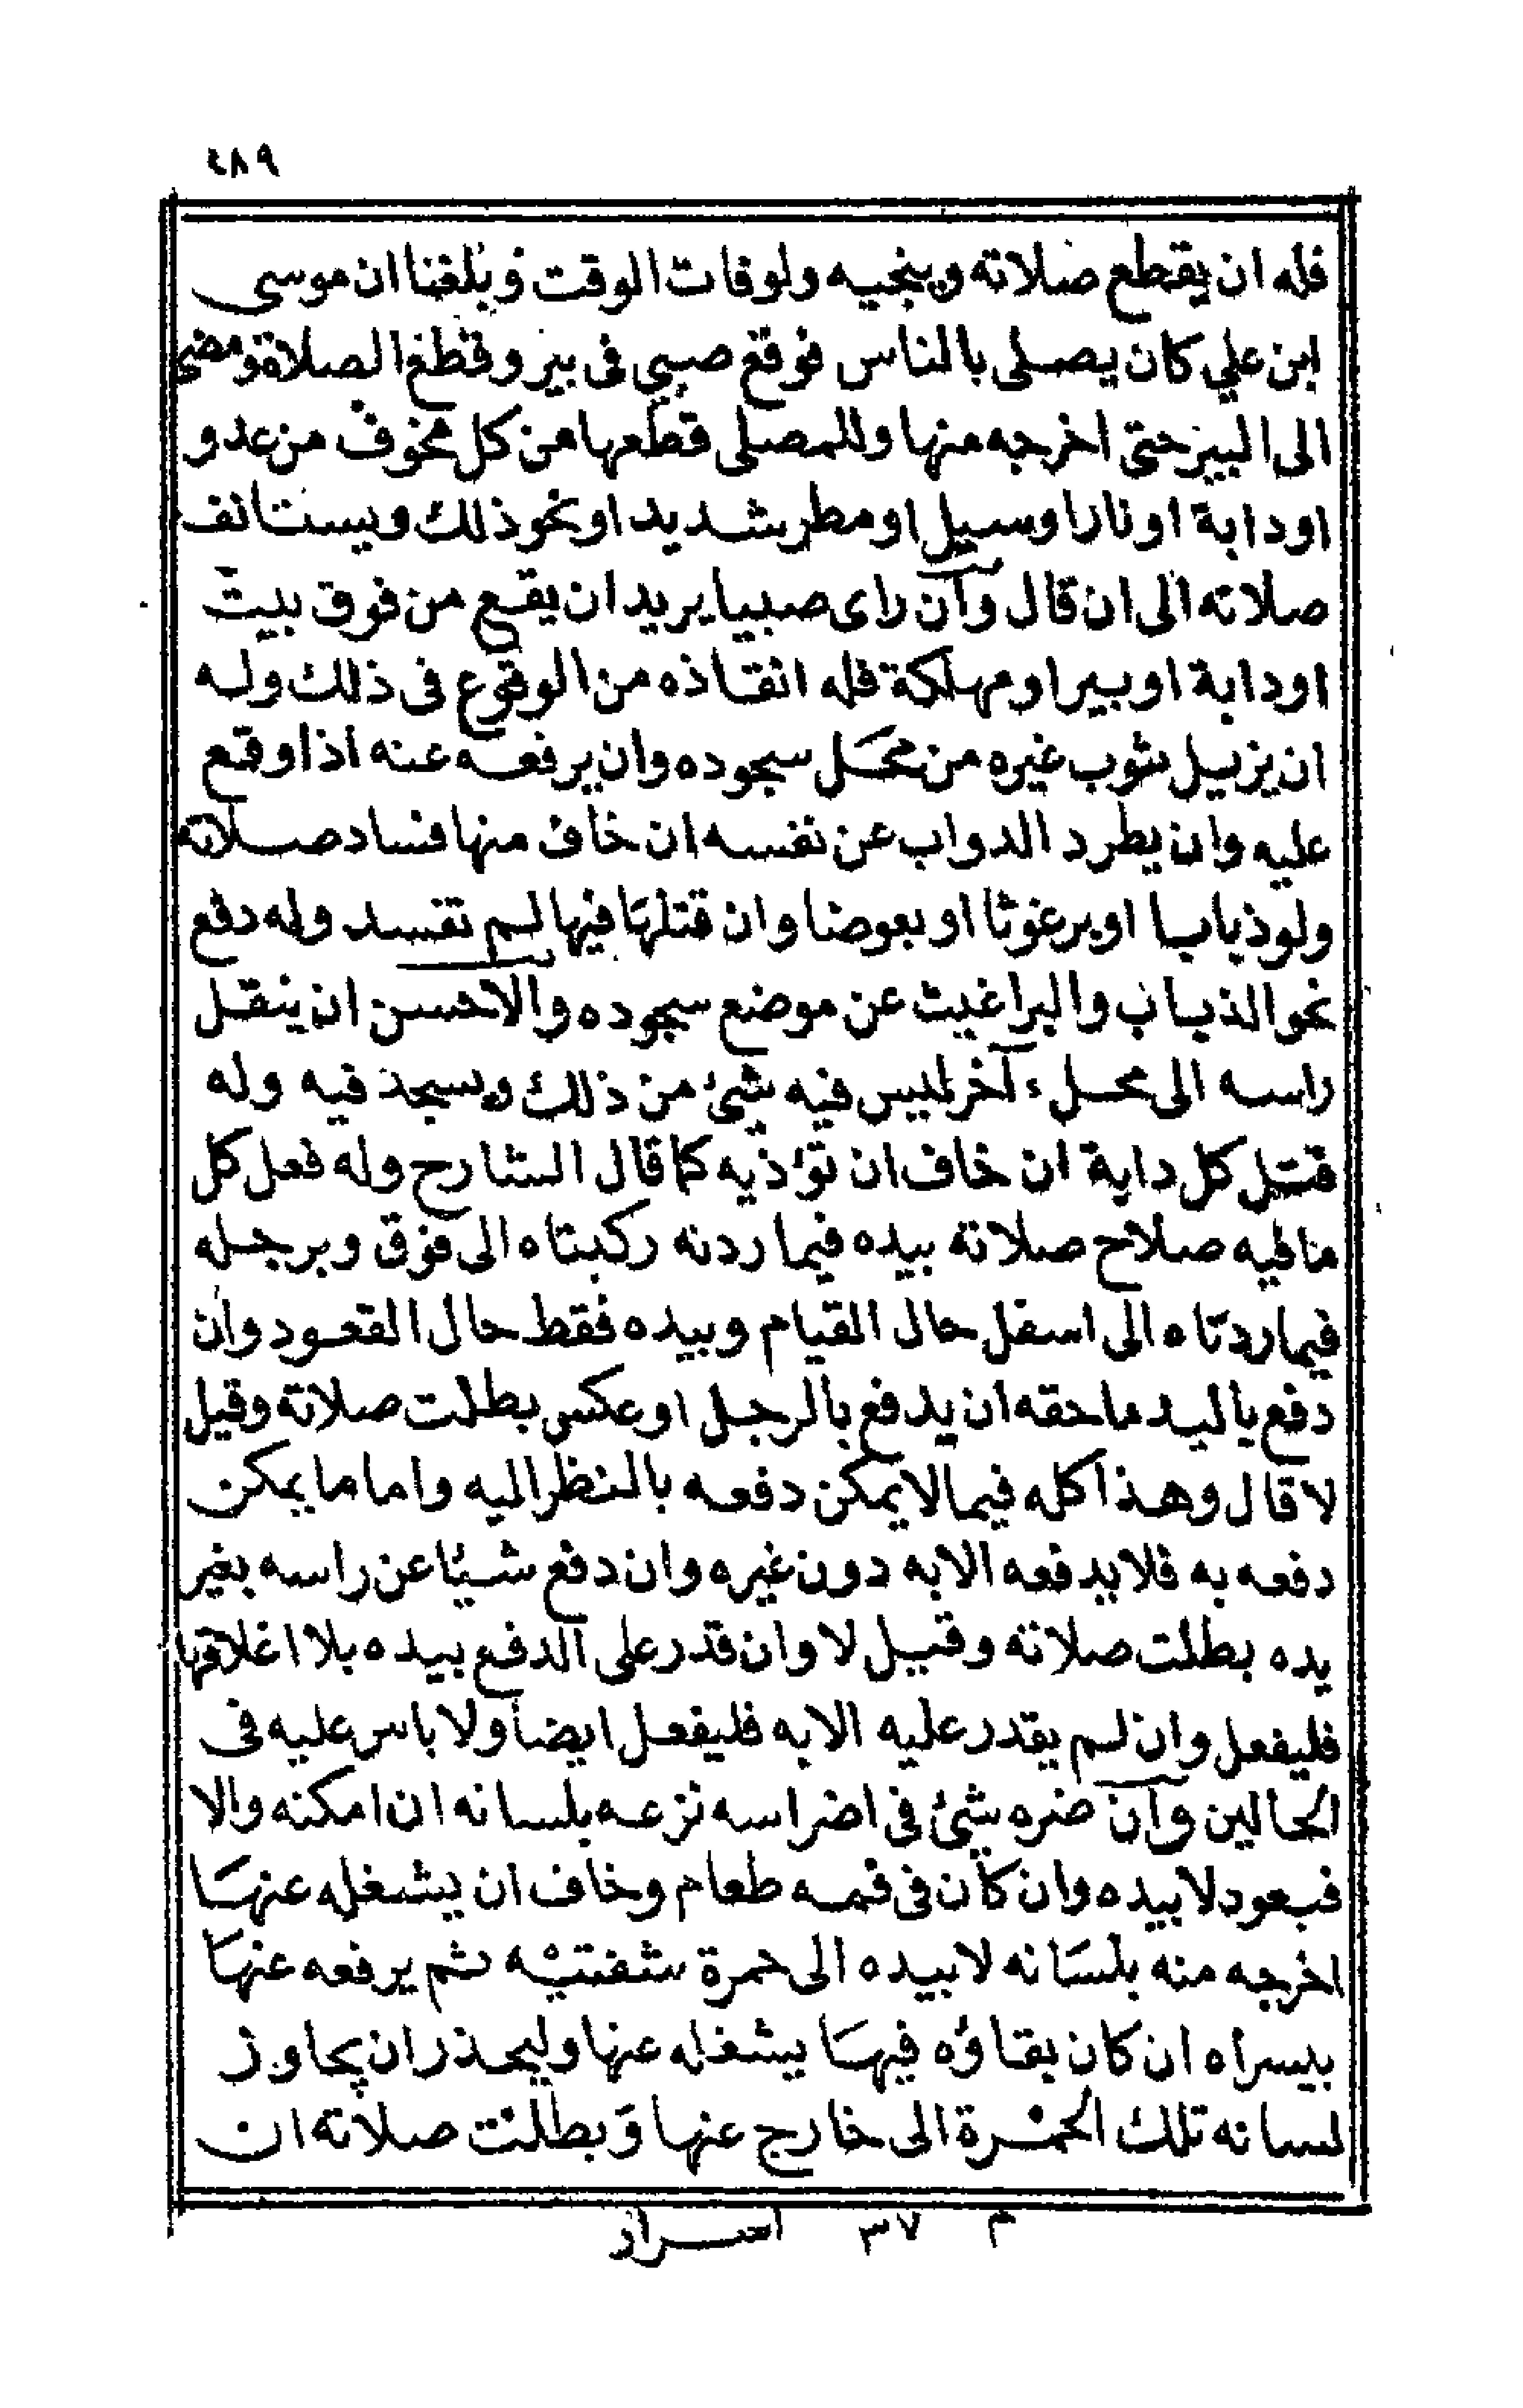 ٤٨٩
فله ان يقطع صلاته وينجيه ولو فات الوقت وبلغنا ان موسى
ابن علي كان يصلى بالناس فوقع صبي فى بير وقطع الصلاة ومضى
الى البير حتى اخرجه منها وللمصلى قطعها من كل مخوف من عدو
او دابة او نار او سيل او مطر شديد او نحو ذلك ويستانف
صلاته الى ان قال وان راى صبيا يريد ان يقع من فوق بيت
او دابة او بير او مهلكة فله انقاذه من الوقوع فى ذلك وله
ان يزيل ثوب غيره من محل سجوده وان يرفعه عنه اذا وقع
عليه وان يطرد الدواب عن نفسه ان خاف منها فساد صلاته
ولو ذبابا او برغوثا او بعوضا وان قتلها فيها لم تفسد وله دفع
نحو الذباب والبراغيث عن موضع سجوده والاحسن ان ينقل
راسه الى محل آخر ليس فيه شئ من ذلك ويسجد فيه وله
قتل كل دابة ان خاف ان تؤذيه كما قال الشارح وله فعل كل
ما فيه صلاح صلاته بيده فيما ردته ركبتاه الى فوق وبرجله
فيما ردتاه الى اسفل حال القيام وبيده فقط حال القعود وان
دفع باليد ما حقه ان يدفع بالرجل او عكس بطلت صلاته وقيل
لا قال وهذا كله فيما لا يمكن دفعه بالنظر اليه واما ما يمكن
دفعه به فلا يدفعه الا به دون غيره وان دفع شيئا عن راسه بغير
يده بطلت صلاته وقيل لا وان قدر على الدفع بيده بلا اغلاقها
فليفعل وان لم يقدر عليه الا به فليفعل ايضا ولا باس عليه فى
الحالين وان ضره شئ فى اضراسه نزعه بلسانه ان امكنه والا
فبعود لا بيده وان كان فى فمه طعام وخاف ان يشغله عنها
اخرجه منه بلسانه لا بيده الى حمرة شفتيه ثم يرفعه عنها
بيسراه ان كان بقاؤه فيها يشغله عنها وليحذر ان يجاوز
لسانه تلك الحمرة الى خارج عنها وبطلت صلاته ان
م ٣٧